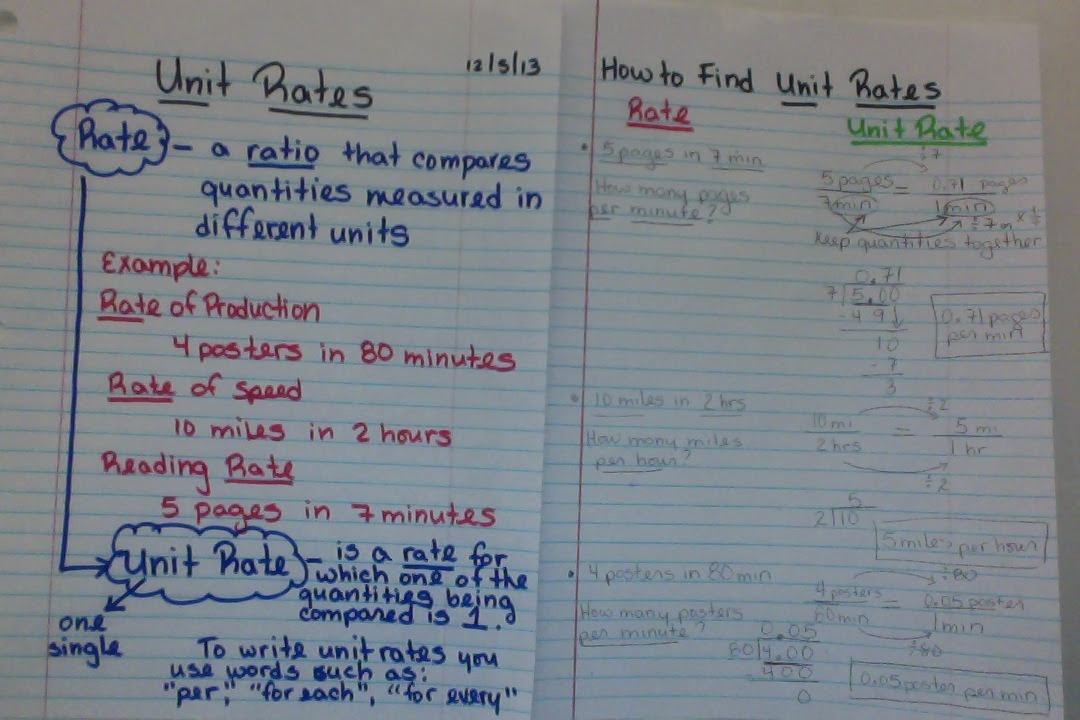 Unit Rates
12/5/13
Rate - a ratio that compares
quantities measured in
different units
Example:
Rate of Production
4 posters in 80 minutes
Rate of speed
10 miles in 2 hours
Reading Rate
5 pages in 7 minutes
Unit Rate - is a rate for
which one of the
quantities being
compared is 1.
one
single
To write unit rates you
use words such as:
"per", "for each", "for every"
How to Find Unit Rates
Rate
Unit Rate
• 5 pages in 7 min
How many pages
per minute?
÷7
5 pages = 0.71 pages
7min 1min
÷7
Keep quantities together
0.71
7 5.00
-49
10
-7
3
0.71 pages
per min
• 10 miles in 2 hrs
How many miles
per hour?
÷2
10mi = 5 mi
2hrs 1hr
÷2
5
2 10
5 miles per hour
• 4 posters in 80 min
How many posters
per minute?
÷80
4 posters = 0.05 poster
80min 1min
÷80
0.05
80 4.00
400
0
0.05 poster per min